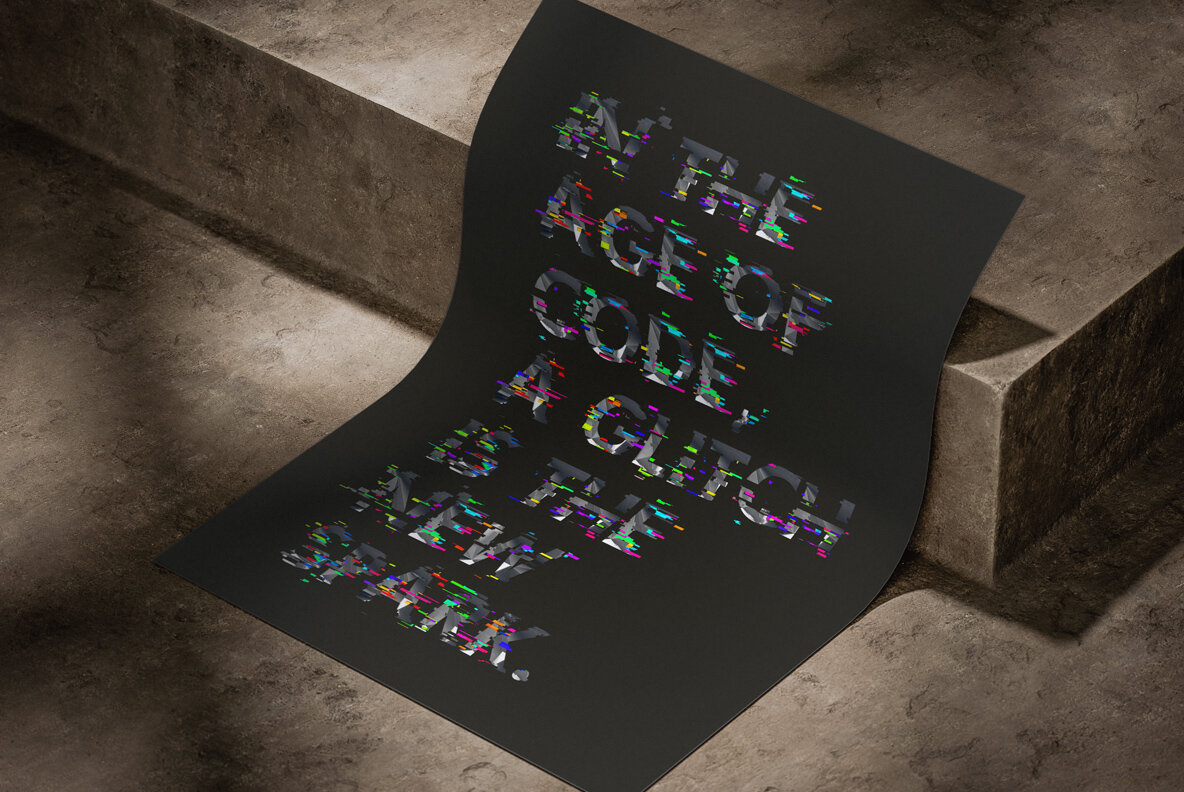 IN THE
AGE OF
CODE,
A GLITCH
IS THE
NEW
SPARK.